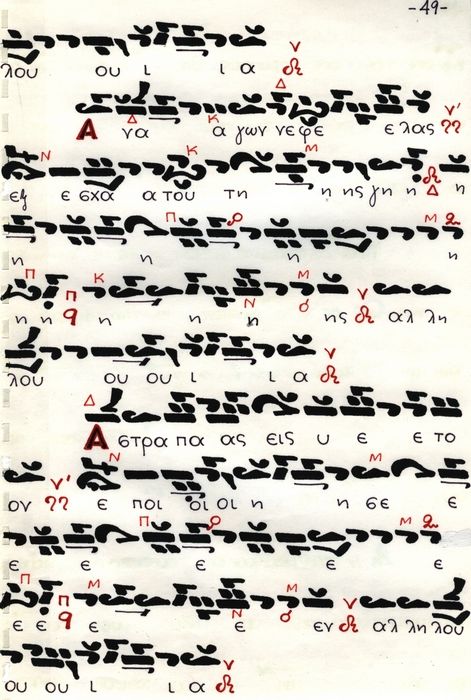 -49-
λου ου ι ι α
Α να α γων νε φε ε λας
εξ ε σχα α του τη η ης γη η
η η η η
η η η η η ης αλ λη
λου ου ου ι ι α
Α στρα πα ας εις υ ε ε το
ον ε ποι οι οι η η σε ε
ε ε ε ε ε
ε ε ε ε ε εν αλ λη λου
ου ου ι ι α